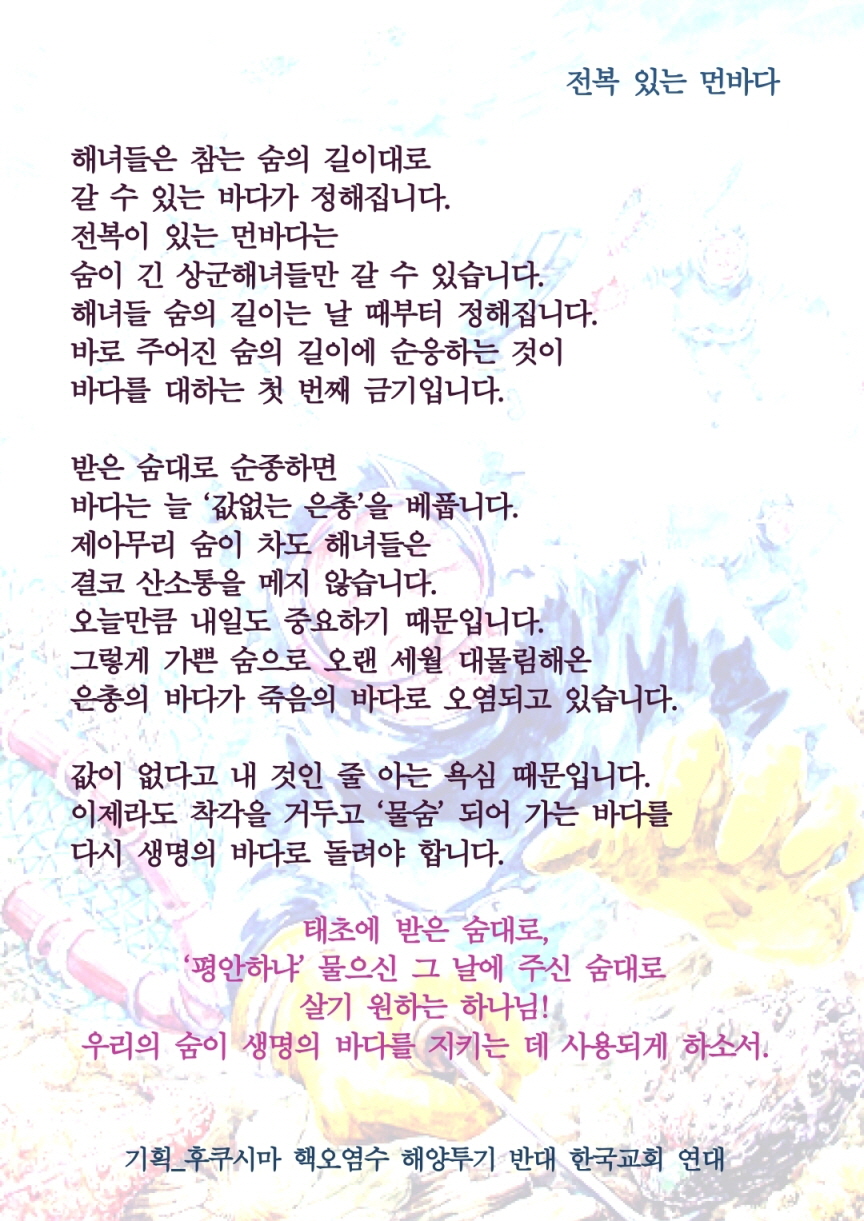 전복 있는 먼바다
해녀들은 참는 숨의 길이대로
갈 수 있는 바다가 정해집니다.
전복이 있는 먼바다는
숨이 긴 상군해녀들만 갈 수 있습니다.
해녀들 숨의 길이는 날 때부터 정해집니다.
바로 주어진 숨의 길이에 순응하는 것이
바다를 대하는 첫 번째 금기입니다.
받은 숨대로 순종하면
바다는 늘 ‘값없는 은총’을 베풉니다.
제아무리 숨이 차도 해녀들은
결코 산소통을 메지 않습니다.
오늘만큼 내일도 중요하기 때문입니다.
그렇게 가쁜 숨으로 오랜 세월 대물림해온
은총의 바다가 죽음의 바다로 오염되고 있습니다.
값이 없다고 내 것인 줄 아는 욕심 때문입니다.
이제라도 착각을 거두고 ‘물숨’ 되어 가는 바다를
다시 생명의 바다로 돌려야 합니다.
태초에 받은 숨대로,
‘평안하냐’ 물으신 그 날에 주신 숨대로
살기 원하는 하나님!
우리의 숨이 생명의 바다를 지키는 데 사용되게 하소서.
기획_후쿠시마 핵오염수 해양투기 반대 한국교회 연대